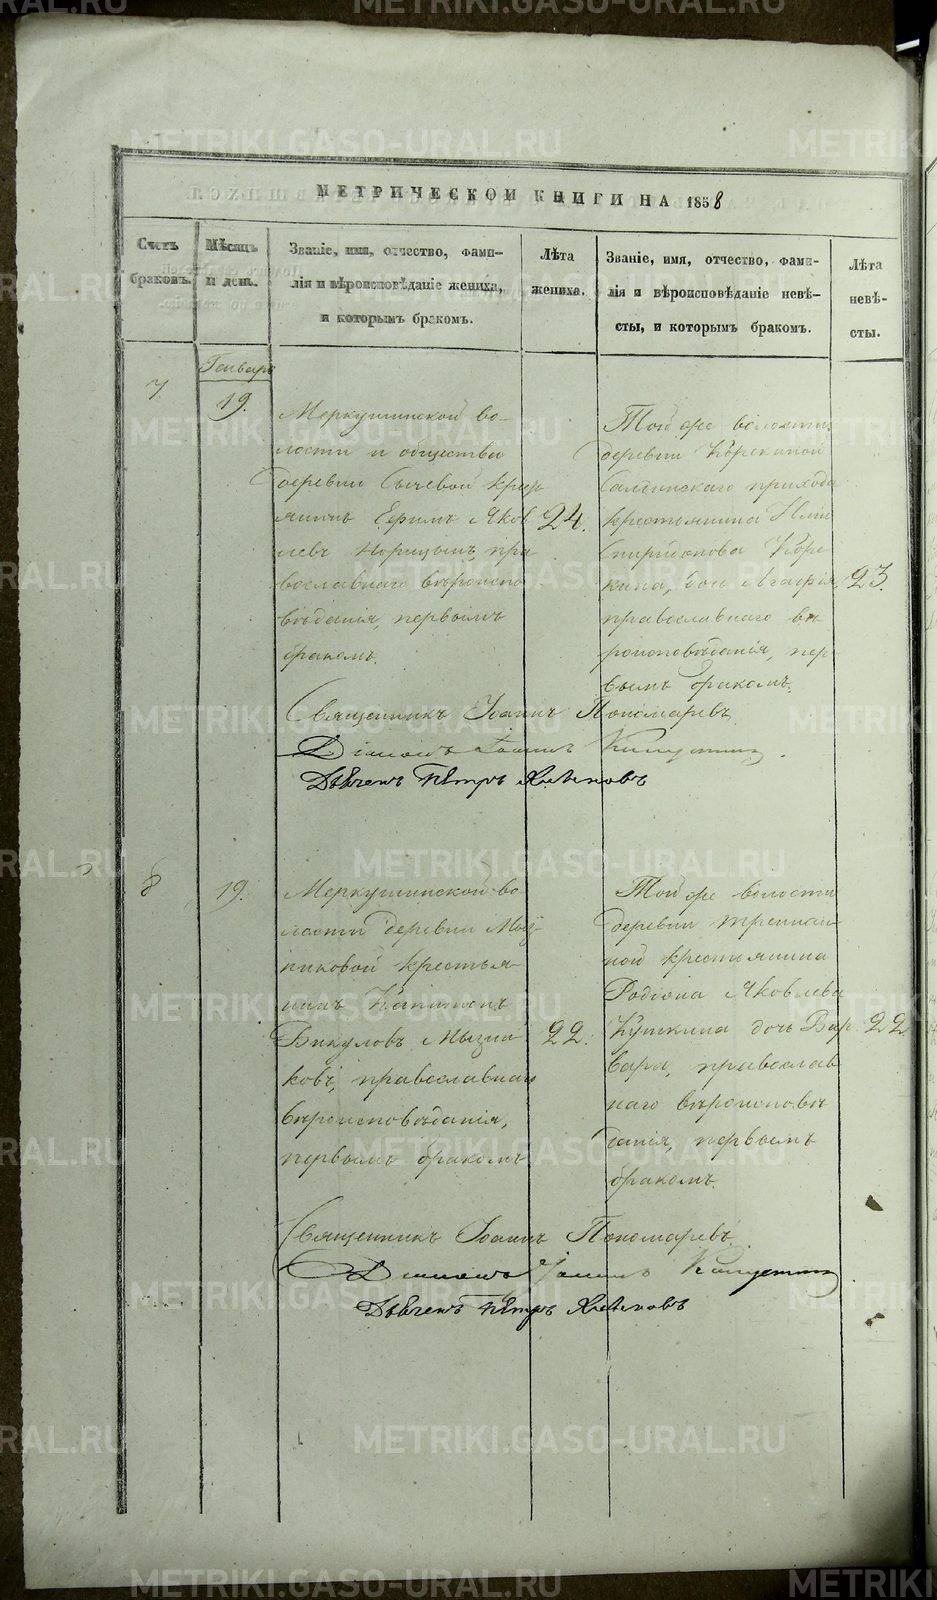 МЕТРИЧЕСКОЙ КНИГИ НА 1858
Счетъ браковъ.
Мѣсяцъ и день.
Званіе, имя, отчество, фами-
лія и вѣроисповѣданіе жениха,
и которымъ бракомъ.
Лѣта
жениха.
Званіе, имя, отчество, фами-
лія и вѣроисповѣданіе невѣ-
сты, и которымъ бракомъ.
Лѣта
невѣ-
сты.
Генварь
7
19.
Меркушинской во-
лости и общества
деревни Сычевой кресть
янинъ Ефимъ Яков
левъ Норицынъ, пра
вославнаго вѣроиспо
вѣданія, первымъ
бракомъ.
24.
Той же волости
деревни Корекиной
Салдинскаго прихода
крестьянина
Спиридонова Коре
кина, дочь Агафія,
православнаго вѣ
роисповѣданія, пер
вымъ бракомъ.
23.
Священникъ Іоаннъ Пономаревъ.
Діаконъ Іоаннъ Капустинъ
Дьячекъ Петръ Хлѣновъ
8
19.
Меркушинской во
лости деревни Мыз-
никовой крестья-
нинъ Капитонъ
Викуловъ Мызни
ковъ, православнаго
вѣроисповѣданія,
первымъ бракомъ
22.
Той же волости
деревни
ной крестьянина
Родіона Яковлева
Кушкина дочь Вар
вара, православ
наго вѣроисповѣ
данія, первымъ
бракомъ.
22
Священникъ Іоаннъ Пономаревъ.
Діаконъ Іоаннъ Капустинъ
Дьячекъ Петръ Хлѣновъ
METRIKI.GASO-URAL.RU